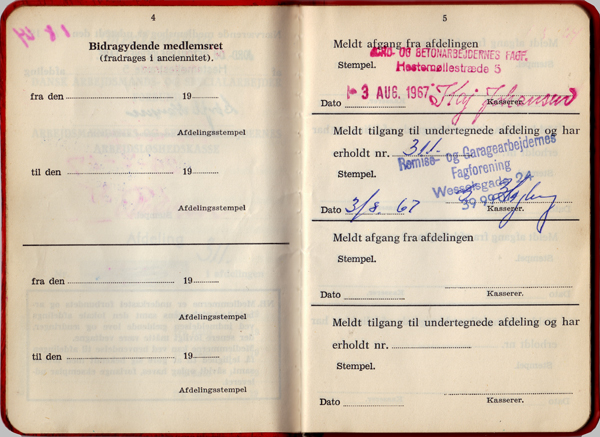 4
Bidragydende medlemsret
(fradrages i anciennitet).
fra den 19
Afdelingsstempel
til den 19
Afdelingsstempel
fra den 19
Afdelingsstempel
til den 19
Afdelingsstempel
5
Meldt afgang fra afdelingen
JORD- OG BETONARBEJDERNES FAGF.
Stempel.
Hestemøllestræde 5
Dato 3 AUG. 1967 Kaj Johansen
Kasserer.
Meldt tilgang til undertegnede afdeling og har
erholdt nr. 311
Remise- og Garagearbejdernes
Stempel.
Fagforening
Wesselsgade 2A
Dato 3/8 67
Kasserer.
Meldt afgang fra afdelingen
Stempel.
Dato
Kasserer.
Meldt tilgang til undertegnede afdeling og har
erholdt nr.
Stempel.
Dato
Kasserer.